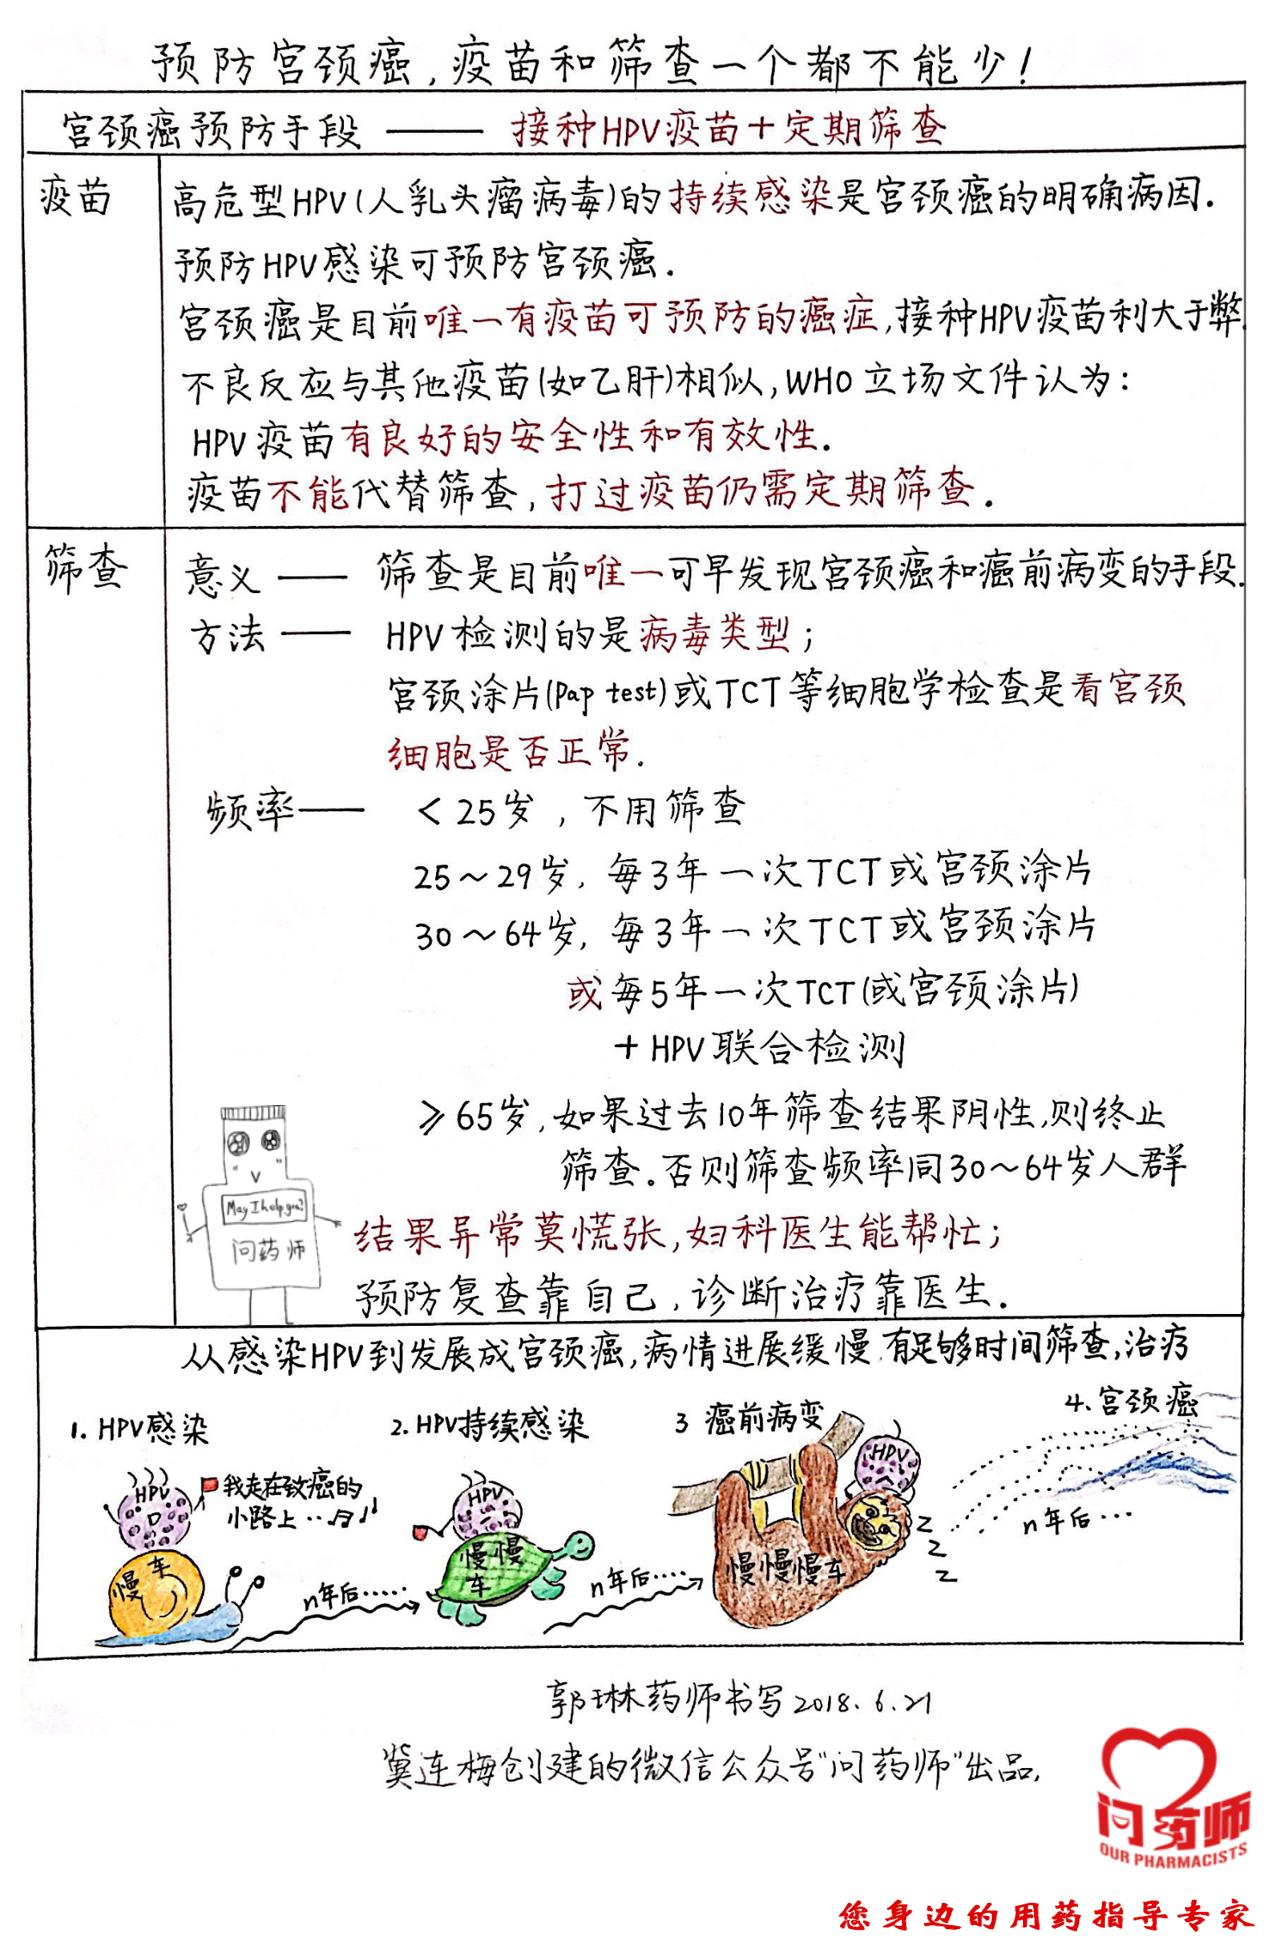 预防宫颈癌,疫苗和筛查一个都不能少!
宫颈癌预防手段 —— 接种HPV疫苗+定期筛查
疫苗
高危型HPV(人乳头瘤病毒)的持续感染是宫颈癌的明确病因.
预防HPV感染可预防宫颈癌.
宫颈癌是目前唯一有疫苗可预防的癌症,接种HPV疫苗利大于弊.
不良反应与其他疫苗(如乙肝)相似,WHO立场文件认为:
HPV疫苗有良好的安全性和有效性.
疫苗不能代替筛查,打过疫苗仍需定期筛查.
筛查
意义 —— 筛查是目前唯一可早发现宫颈癌和癌前病变的手段.
方法 —— HPV检测的是病毒类型;
宫颈涂片(Pap test)或TCT等细胞学检查是看宫颈
细胞是否正常.
频率—— <25岁,不用筛查
25~29岁,每3年一次TCT或宫颈涂片
30~64岁,每3年一次TCT或宫颈涂片
或每5年一次TCT(或宫颈涂片)
+HPV联合检测
≥65岁,如果过去10年筛查结果阴性,则终止
筛查.否则筛查频率同30~64岁人群
May I help you?
问药师
结果异常莫慌张,妇科医生能帮忙;
预防复查靠自己,诊断治疗靠医生.
从感染HPV到发展成宫颈癌,病情进展缓慢.有足够时间筛查,治疗
1. HPV感染
2. HPV持续感染
3 癌前病变
4.宫颈癌
HPV
我走在致癌的
小路上…♫♩
慢车
n年后……
HPV
慢慢
车
n年后……
HPV
慢慢慢车
z
z
z
n年后…
郭琳药师书写2018.6.21
冀连梅创建的微信公众号"问药师"出品.
问药师
OUR PHARMACISTS
您身边的用药指导专家